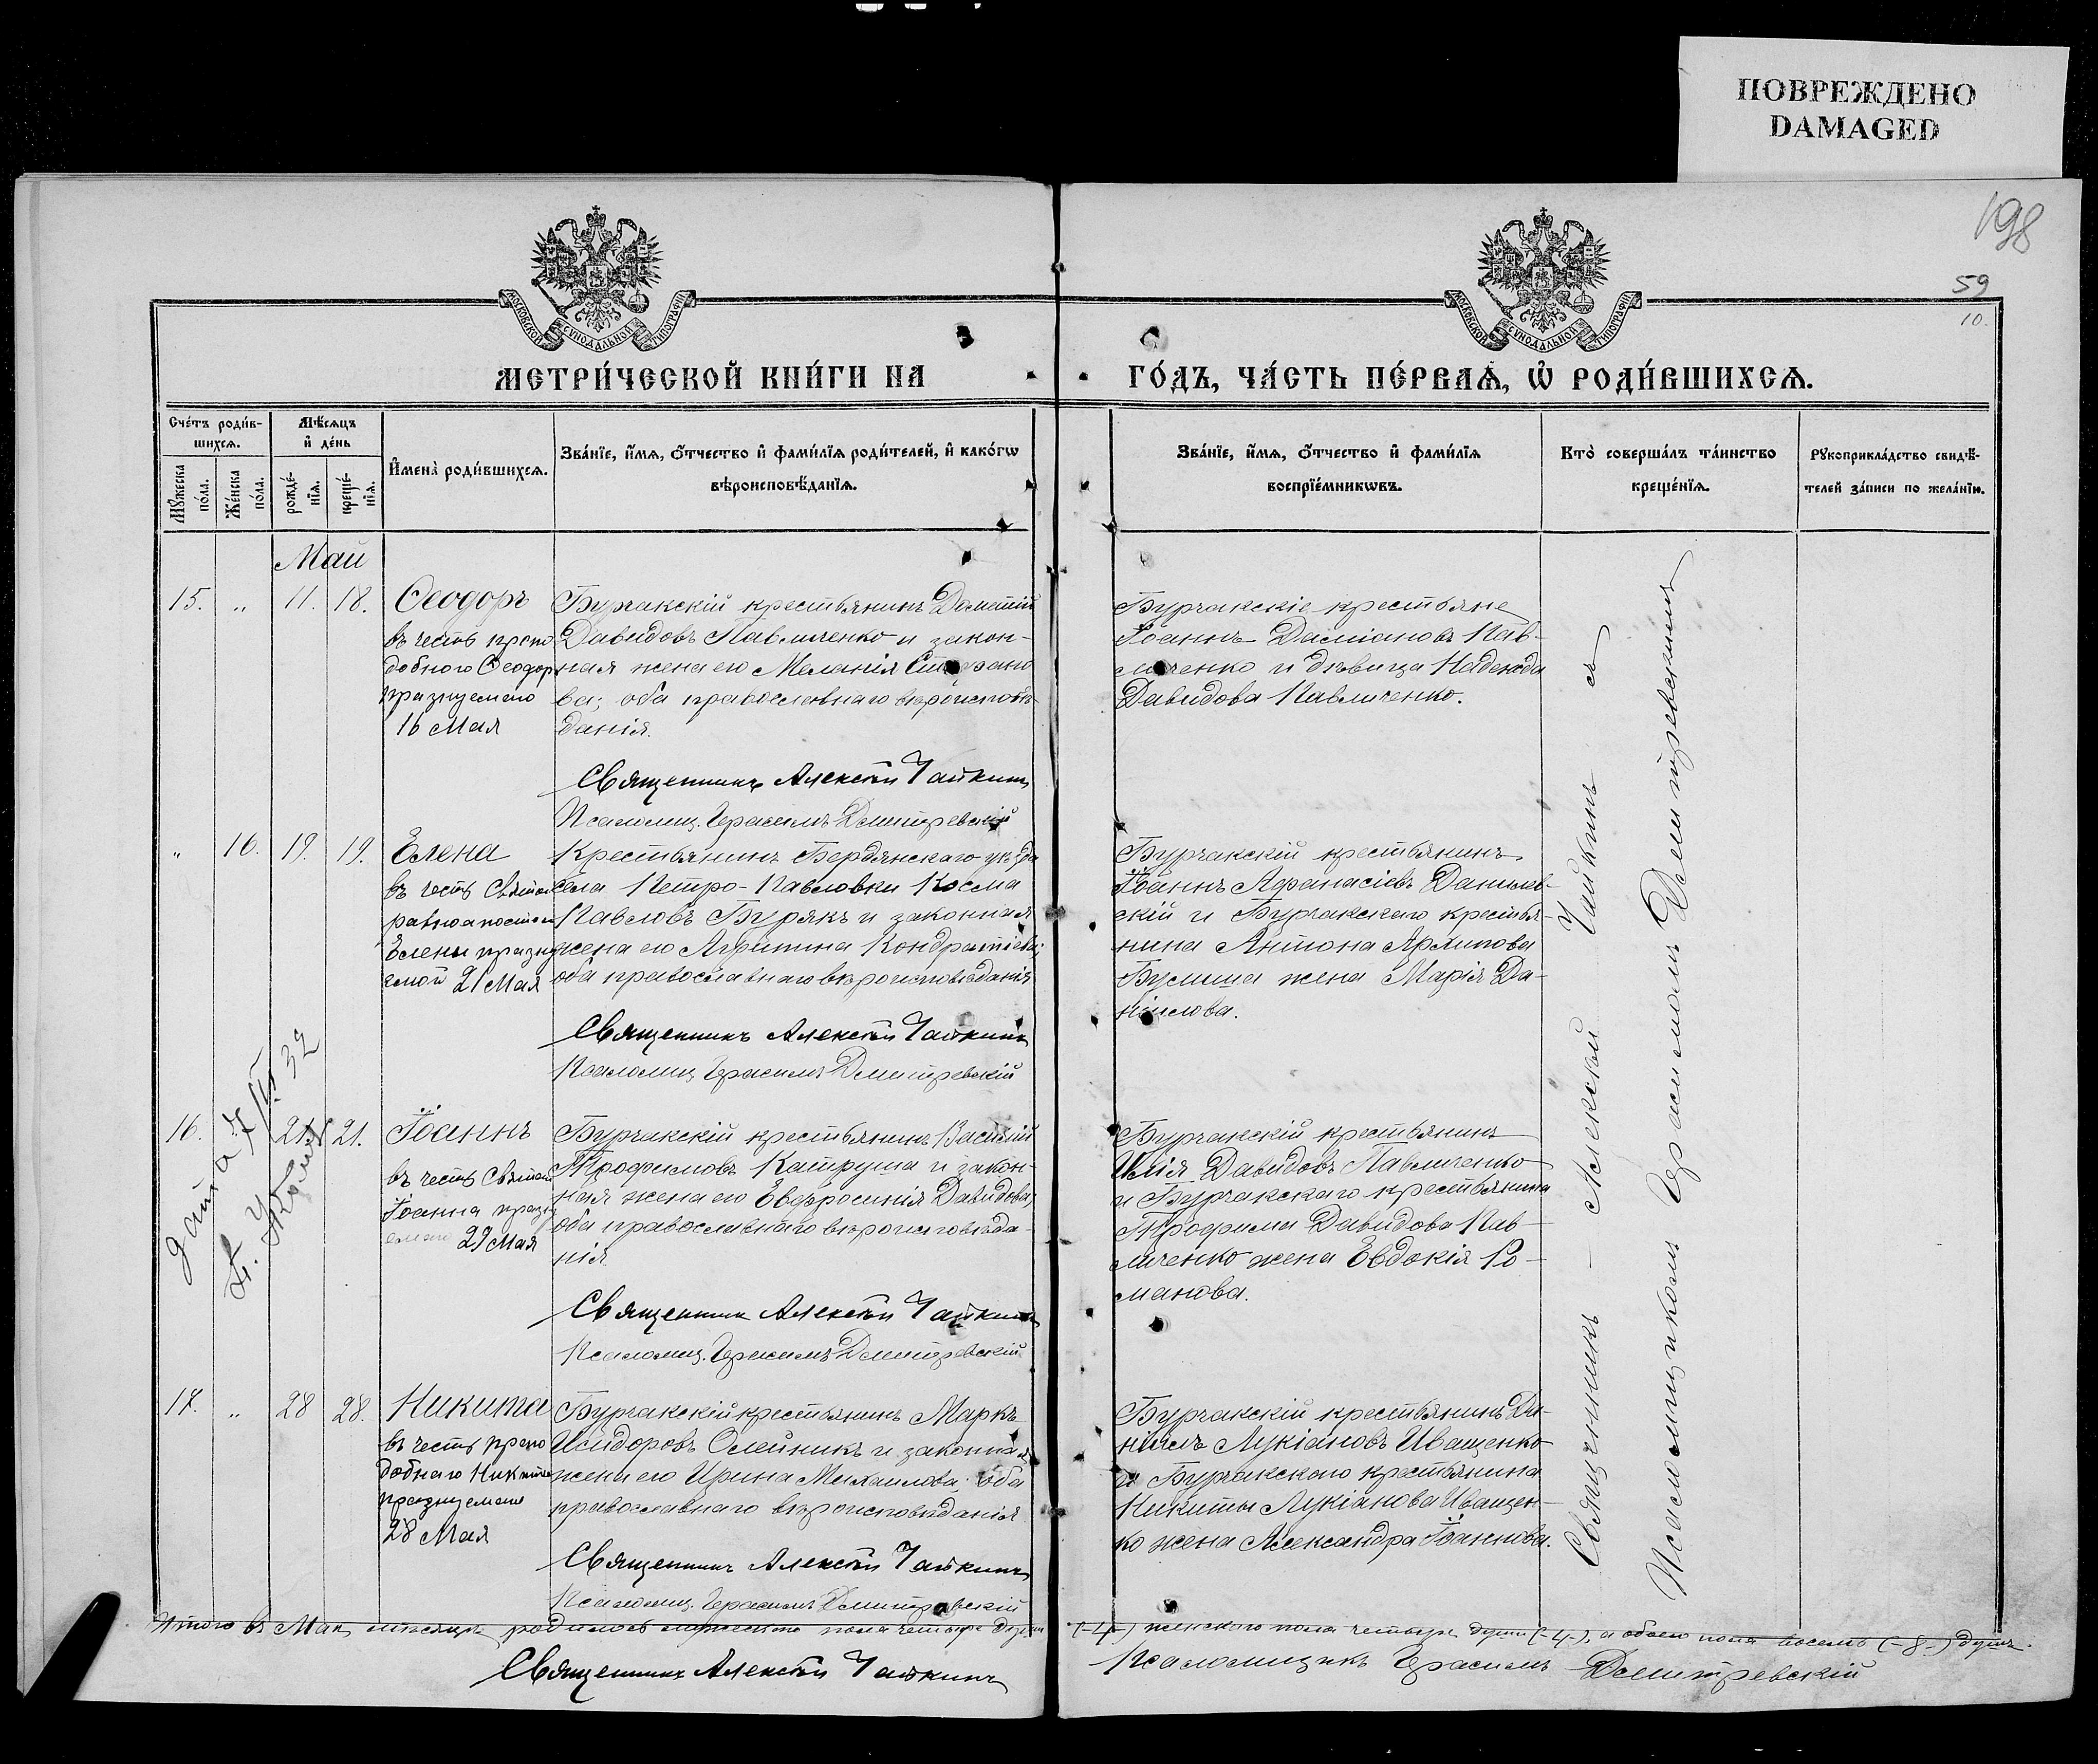 ПОВРЕЖДЕНО
DAMAGED
198
59
10.
МОСКОВСКОЙ СѴНОДАЛЬНОЙ ТИПОГРАФІИ
МОСКОВСКОЙ СѴНОДАЛЬНОЙ ТИПОГРАФІИ
МЕТРИ́ЧЕСКОЙ КНИ́ГИ НА ГО́ДЪ, ЧА́СТЬ ПЕ́РВАѦ, Ѡ҆ РОДИ́ВШИХСѦ.
Сче́тъ роди́в-
шихсѧ.
Мꙋжеска по́ла.
Же́нска по́ла.
Мѣ́сѧцъ
и҆ де́нь
рожде́-
нїѧ.
креще́-
нїѧ.
И҆мена̀ роди́вшихсѧ.
Зва́нїе, и҆́мѧ, ѻ҆́тчество и҆ фами́лїѧ роди́телей, и҆ како́гѡ
вѣроисповѣ́данїѧ.
Зва́нїе, и҆́мѧ, ѻ҆́тчество и҆ фами́лїѧ
воспрїе́мникѡвъ.
Кто̀ соверша́лъ та́инство
креще́нїѧ.
Рꙋкоприкла́дство свидѣ́-
телей за́писи по жела́нїю.
Май
15. „ 11. 18. Ѳеодоръ
въ честь препо
добнаго Ѳеодора
празднуемаго
16 Мая
Бурчакскій крестьянинъ Дометій
Давидовъ Павличенко и закон-
ная жена его Меланія Стефано
ва; оба православнаго вѣроисповѣ-
данія.
Священникъ Алексѣй Чайкинъ
Псаломщ. Герасимъ Дмитревскій
Бурчакскіе крестьяне
Іоаннъ Даміановъ Пав-
личенко и дѣвица Надежда
Давидова Павличенко.
„ 16. 19. 19. Елена
въ честь Святой
равноапостол
Елены праздну
емой 21 Мая
Крестьянинъ Бердянскаго уѣзда
села Петро-Павловки Косма
Павловъ Бурякъ и законная
жена его Агрипина Кондратіева;
оба православнаго вѣроисповѣданія
Священникъ Алексѣй Чайкинъ
Псаломщ. Герасимъ Дмитревскій
Бурчакскій крестьянинъ
Іоаннъ Аѳанасіевъ Данилев-
скій и Бурчакскаго крестья-
нина Антона Архипова
жена Марія Да-
ніилова.
16. 21. 21. Іоаннъ
въ честь Святаго
Іоанна праздну
емаго 29 Мая
Бурчакскій крестьянинъ Василій
Трофимовъ Катруша и закон-
ная жена его Евфросинія Давидова;
оба православнаго вѣроисповѣда-
нія.
Священникъ Алексѣй Чайкинъ
Псаломщ. Герасимъ Дмитревскій
Бурчакскій крестьянинъ
Илія Давидовъ Павличенко
и Бурчакскаго крестьянина
Трофима Давидова Пав-
личенко жена Евдокія Ро-
манова.
32
17. „ 28 28. Никита
въ честь препо
добнаго Никиты
празднуемаго
28 Мая
Бурчакскій крестьянинъ Маркъ
Исидоровъ Олейникъ и законная
жена его Ирина Михаилова; оба
православнаго вѣроисповѣданія.
Священникъ Алексѣй Чайкинъ
Псаломщ. Герасимъ Дмитревскій
Бурчакскій крестьянинъ Да-
ніилъ Лукіановъ Иващенко
и Бурчакскаго крестьянина
Никиты Лукіанова Иващен-
ко жена Александра Іоаннова.
Священникъ — Алексѣй Чайкинъ съ
Псаломщикомъ Герасимомъ Дмитревскимъ
Итого въ Маѣ мѣсяцѣ родилось мужеска пола четыре души (-4-) женскаго пола четыре души (-4-), а обоего пола восемь (-8-) душъ.
Священникъ Алексѣй Чайкинъ
Псаломщикъ Герасимъ Дмитревскій